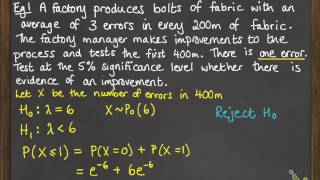 Eg1 A factory produces bolts of fabric with an
average of 3 errors in every 200m of fabric.
The factory manager makes improvements to the
process and tests the first 400m. There is one error.
Test at the 5% significance level whether there is
evidence of an improvement.
Let X be the number of errors in 400m
H₀: λ = 6 X~Po(6) Reject H₀
H₁: λ < 6
P(X≤1) = P(X=0) + P(X=1)
= e⁻⁶ + 6e⁻⁶